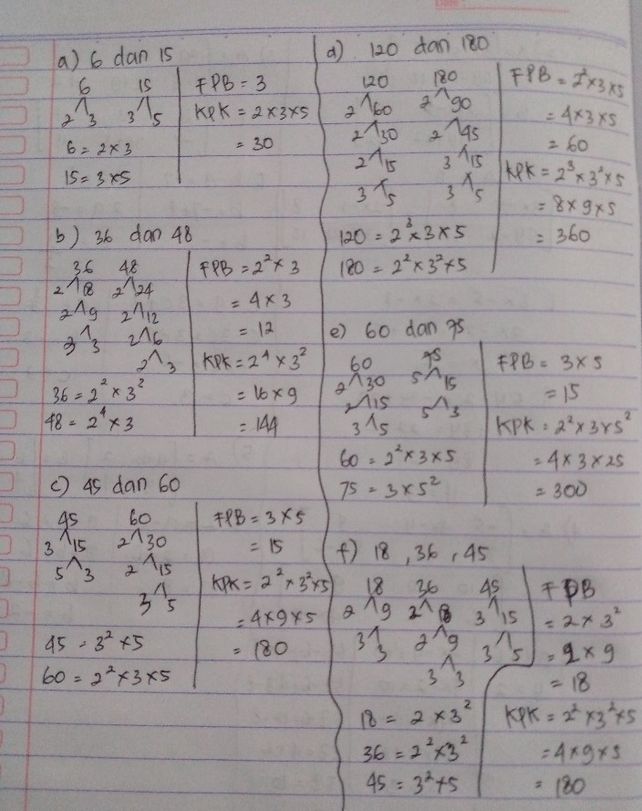 a) 6 dan 15
6 15
2 3 3 5
6 = 2 x 3
15 = 3 x 5
FPB = 3
KPK = 2 x 3 x 5
= 30
b) 36 dan 48
36 48
2 18 2 24
2 9 2 12
3 3 2 6
2 3
36 = 2² x 3²
48 = 2⁴ x 3
FPB = 2² x 3
= 4 x 3
= 12
KPK = 2⁴ x 3²
= 16 x 9
= 144
c) 45 dan 60
45 60
3 15 2 30
5 3 2 15
3 5
45 = 3² x 5
60 = 2² x 3 x 5
FPB = 3 x 5
= 15
KPK = 2² x 3² x 5
= 4 x 9 x 5
= 180
d) 120 dan 180
120 180
2 60 2 90
2 30 2 45
2 15 3 15
3 5 3 5
120 = 2³ x 3 x 5
180 = 2² x 3² x 5
FPB = 2² x 3 x 5
= 4 x 3 x 5
= 60
KPK = 2³ x 3² x 5
= 8 x 9 x 5
= 360
e) 60 dan 75
60 75
2 30 5 15
2 15 5 3
3 5
60 = 2² x 3 x 5
75 = 3 x 5²
FPB = 3 x 5
= 15
KPK = 2² x 3 x 5²
= 4 x 3 x 25
= 300
f) 18, 36, 45
18 36 45
2 9 2 18 3 15
3 3 2 9 3 5
3 3
18 = 2 x 3²
36 = 2² x 3²
45 = 3² x 5
FPB
= 2 x 3²
= 2 x 9
= 18
KPK = 2² x 3² x 5
= 4 x 9 x 5
= 180